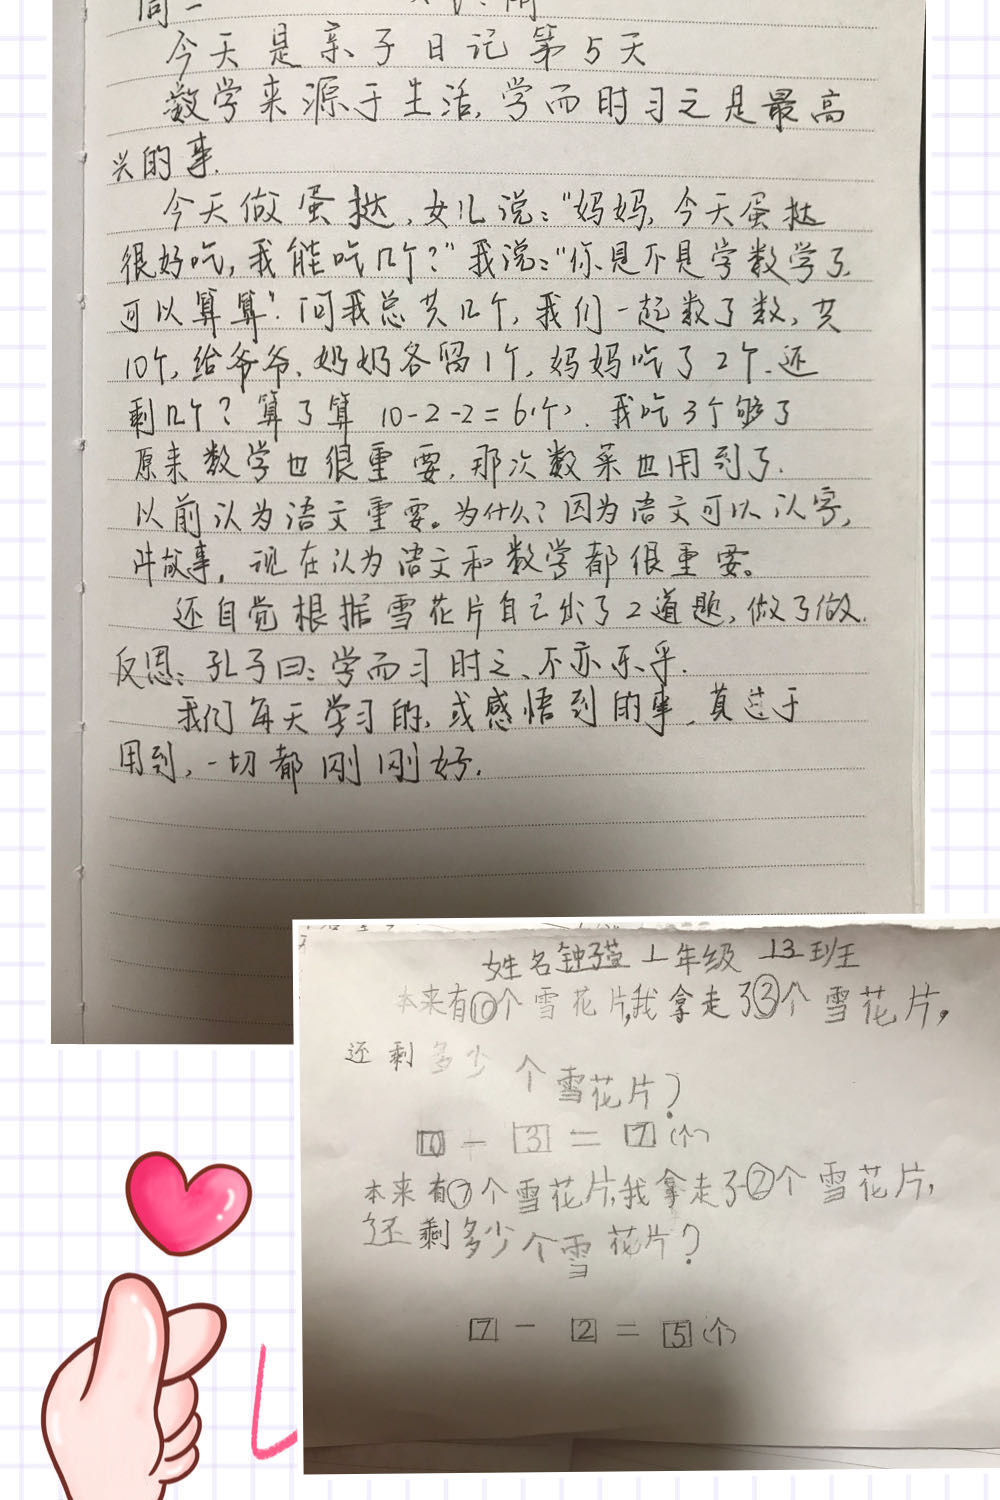 今天是亲子日记第5天
数学来源于生活,学而时习之是最高
兴的事.
今天做蛋挞,女儿说:"妈妈,今天蛋挞
很好吃,我能吃几个?"我说:"你是不是学数学了,
可以算算"问我总共几个,我们一起数了数,共
10个,给爷爷、奶奶各留1个,妈妈吃了2个.还
剩几个?算了算 10-2-2=6(个),我吃3个够了
原来数学也很重要,那次数菜也用到了.
以前认为语文重要。为什么?因为语文可以认字,
讲故事,现在认为语文和数学都很重要。
还自觉根据雪花片自己出了2道题,做了做.
反思:孔子曰:学而习时之、不亦乐乎.
我们每天学习的,或感悟到的事,莫过于
用到,一切都刚刚好.
姓名 1年级 13班
本来有⑩个雪花片,我拿走了③个雪花片,
还剩多少个雪花片?
10-3=7(个)
本来有⑦个雪花片,我拿走了②个雪花片,
还剩多少个雪花片?
7-2=5(个)